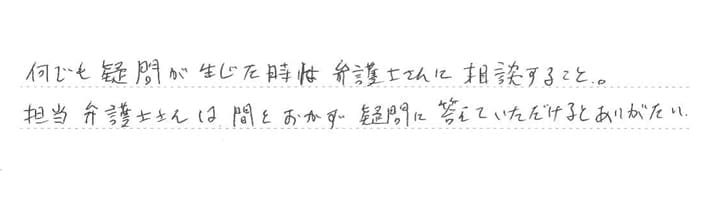 何でも疑問が生じた時は弁護士さんに相談すること。
担当弁護士さんは、間をおかず疑問に答えていただけるとありがたい。